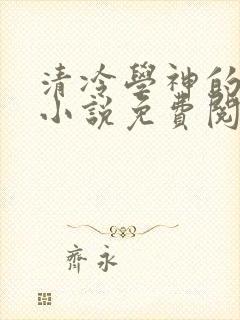 清冷學神的
小說免費閱
齊永